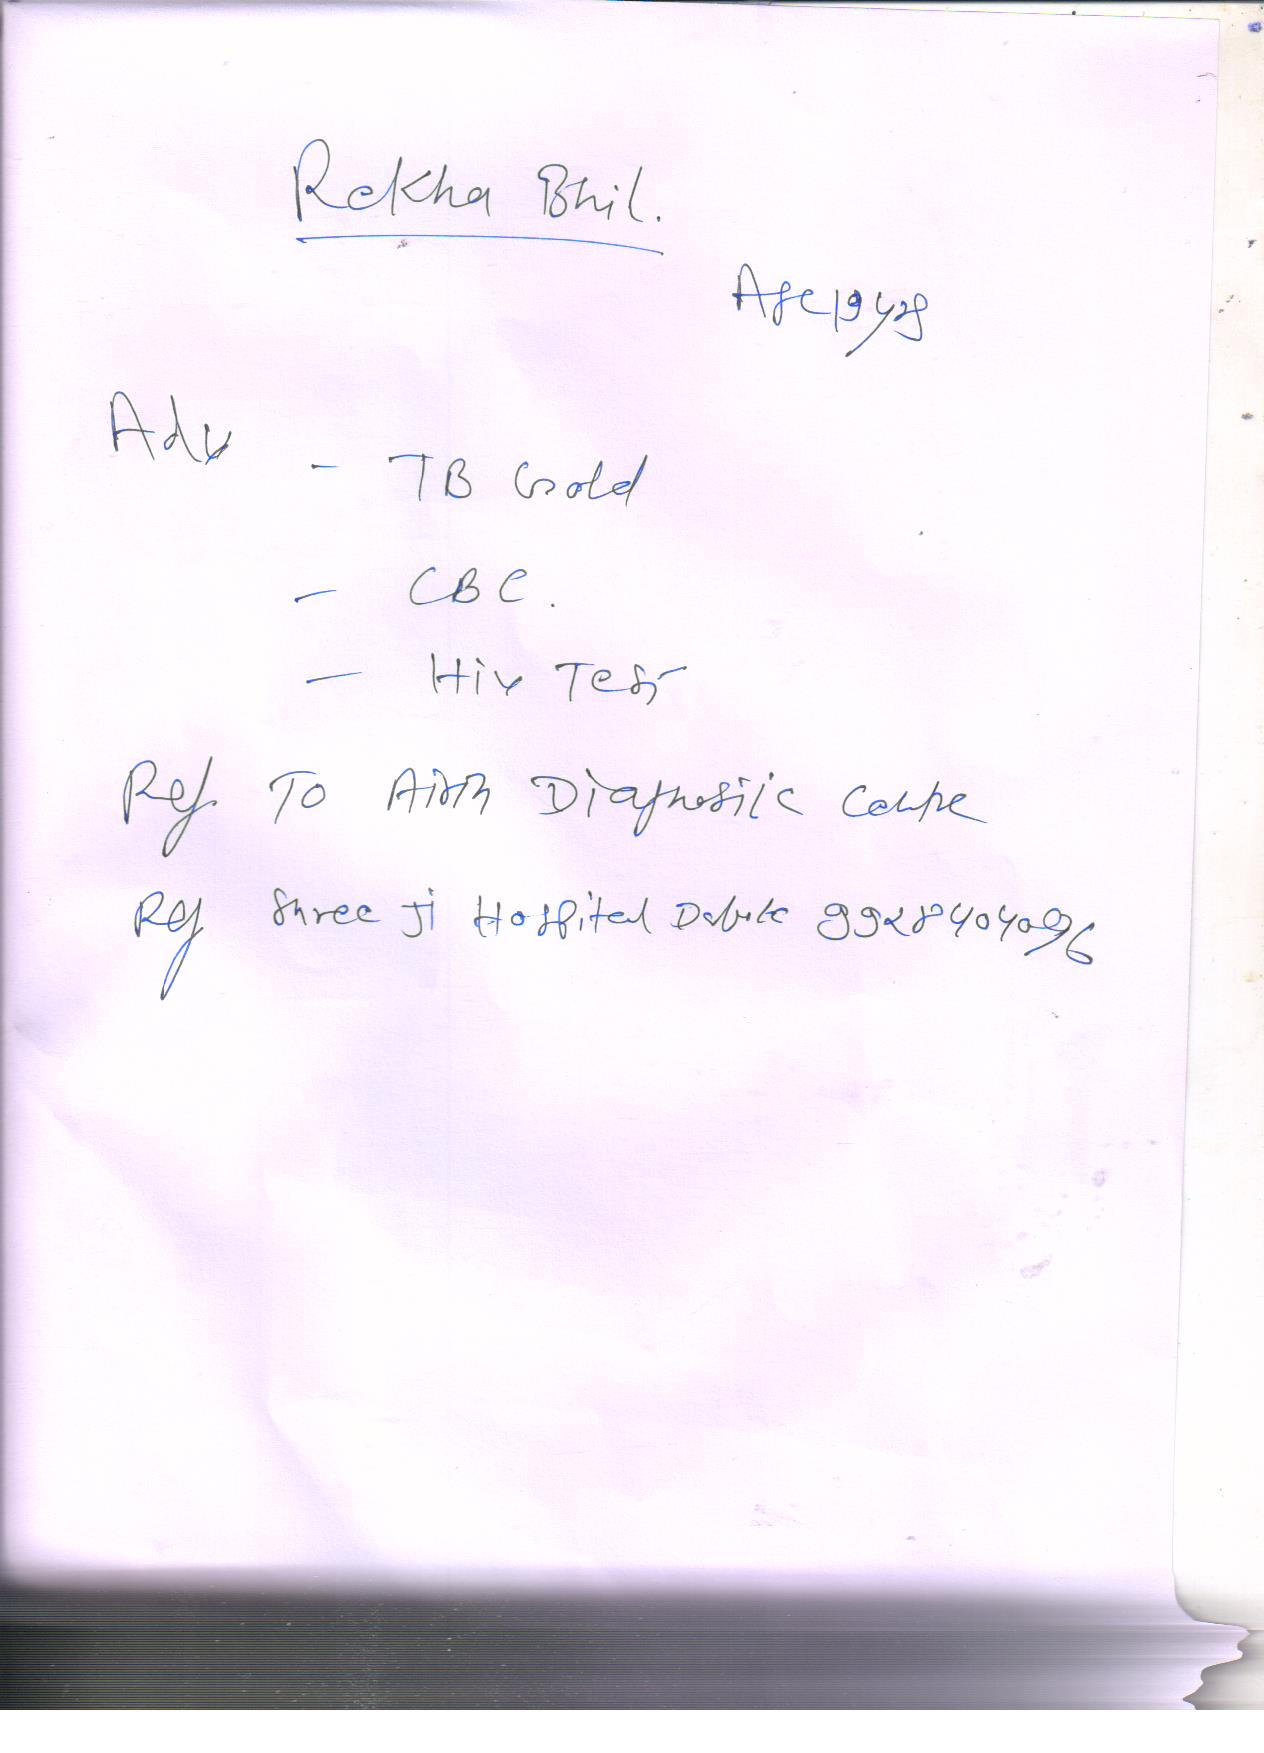 Rekha Bhil.
Age 19 yrs
Adv - TB Gold
- CBC.
- Hiv Test
Ref. To Diagnostic Centre
Ref Shree Ji Hospital 9928404096